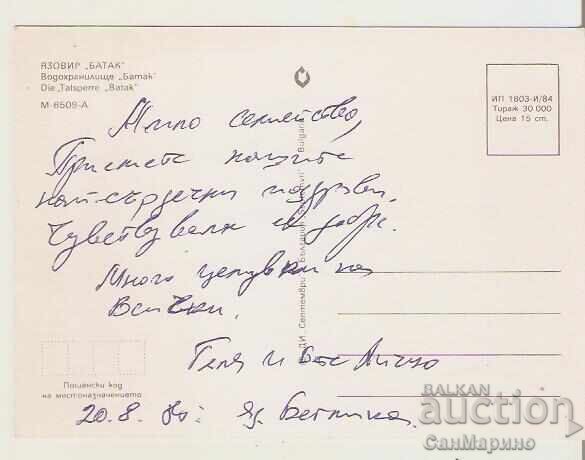 ЯЗОВИР „БАТАК"
Водохранилище „Батак"
Die „Talsperre „Batak"
М-6509-А
ИП 1803-И/84
Тираж 30 000
Цена 15 ст.
Мило семейство,
Приемете нашите
най-сърдечни поздрави.
Чувстваме се добре.
Много целувки на
всички.
Геля и
20.8. яз. Беглика.
ДИ „Септември" България Bulgaria
Пощенски код
на местоназначението
BALKAN
auction
СанМарино